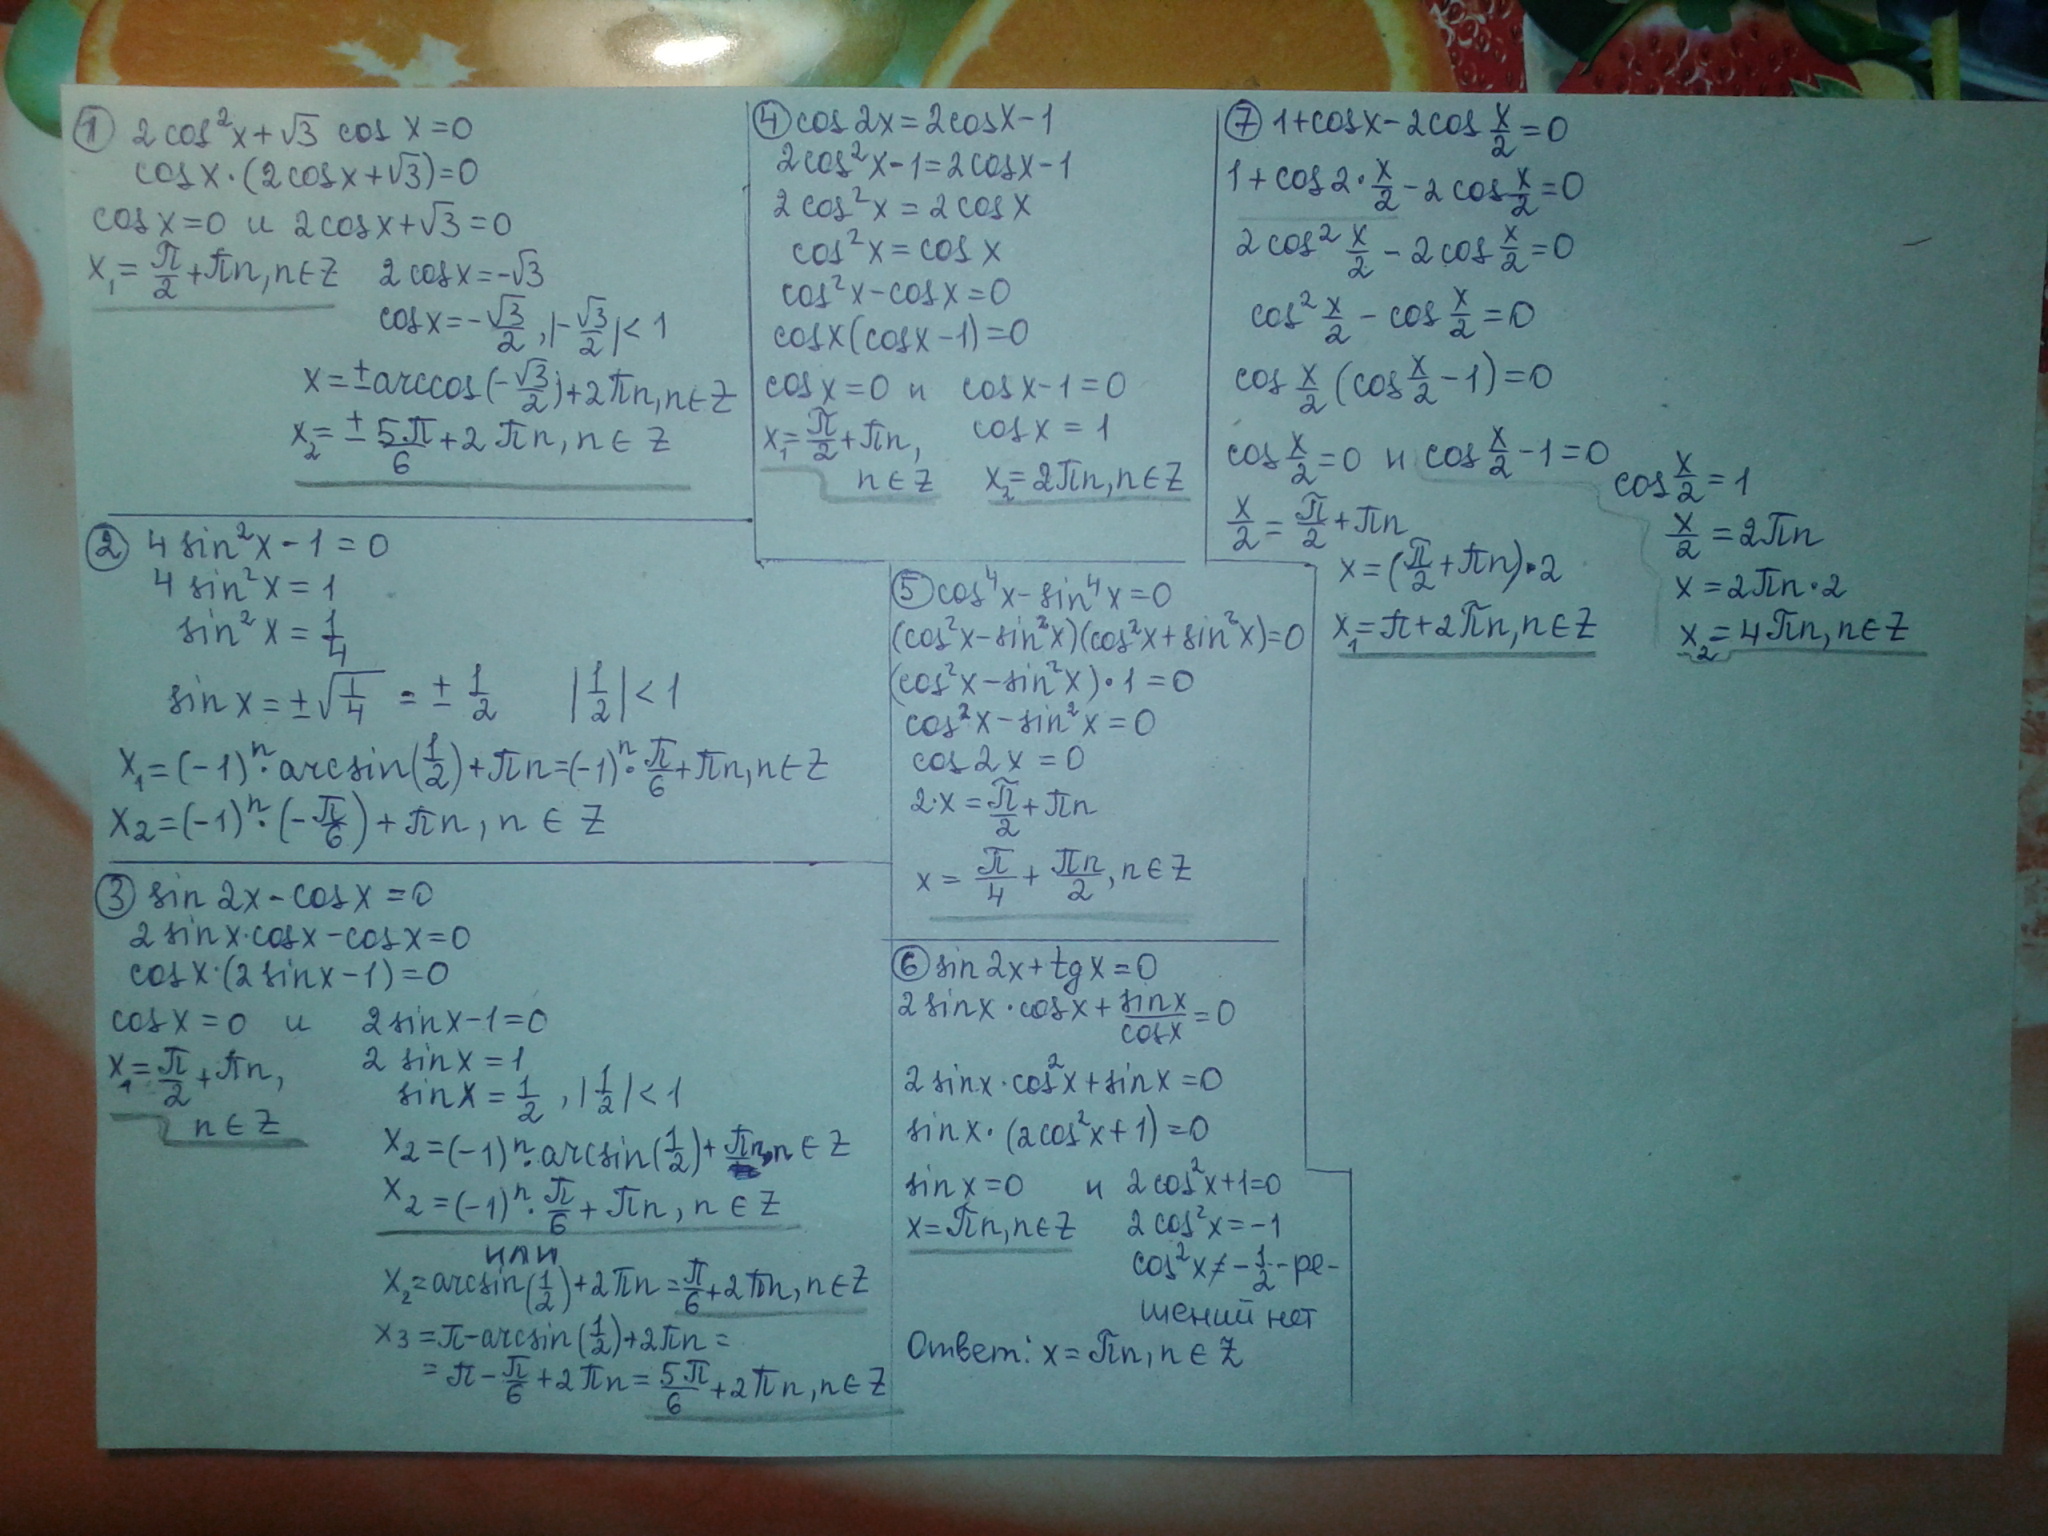 ① 2cos²x+√3 cos x=0
cosx·(2cosx+√3)=0
cosx=0 и 2cosx+√3=0
x₁=π/2+πn, n∈Z 2cosx=-√3
cosx=-√3/2, |-√3/2|<1
x=±arccos(-√3/2)+2πn, n∈Z
x₂=±5π/6+2πn, n∈Z
② 4sin²x-1=0
4sin²x=1
sin²x=1/4
sinx=±√(1/4)=±1/2 |1/2|<1
x₁=(-1)ⁿ·arcsin(1/2)+πn=(-1)ⁿ·π/6+πn, n∈Z
x₂=(-1)ⁿ·(-π/6)+πn, n∈Z
③ sin2x-cosx=0
2sinx·cosx-cosx=0
cosx·(2sinx-1)=0
cosx=0 и 2sinx-1=0
x₁=π/2+πn, 2sinx=1
n∈Z sinx=1/2, |1/2|<1
x₂=(-1)ⁿ·arcsin(1/2)+πn, n∈Z
x₂=(-1)ⁿ·π/6+πn, n∈Z
или
x₂=arcsin(1/2)+2πn=π/6+2πn, n∈Z
x₃=π-arcsin(1/2)+2πn=
=π-π/6+2πn=5π/6+2πn, n∈Z
④ cos2x=2cosx-1
2cos²x-1=2cosx-1
2cos²x=2cosx
cos²x=cosx
cos²x-cosx=0
cosx(cosx-1)=0
cosx=0 и cosx-1=0
x₁=π/2+πn, cosx=1
n∈Z x₂=2πn, n∈Z
⑤ cos⁴x-sin⁴x=0
(cos²x-sin²x)(cos²x+sin²x)=0
(cos²x-sin²x)·1=0
cos²x-sin²x=0
cos2x=0
2·x=π/2+πn
x=π/4+πn/2, n∈Z
⑥ sin2x+tgx=0
2sinx·cosx+sinx/cosx=0
2sinx·cos²x+sinx=0
sinx·(2cos²x+1)=0
sinx=0 и 2cos²x+1=0
x=πn, n∈Z 2cos²x=-1
cos²x≠-1/2-ре-
шений нет
Ответ: x=πn, n∈Z
⑦ 1+cosx-2cos x/2=0
1+cos2·x/2-2cos x/2=0
2cos² x/2-2cos x/2=0
cos² x/2-cos x/2=0
cos x/2(cos x/2-1)=0
cos x/2=0 и cos x/2-1=0
x/2=π/2+πn
x=(π/2+πn)·2
x₁=π+2πn, n∈Z
cos x/2=1
x/2=2πn
x=2πn·2
x₂=4πn, n∈Z